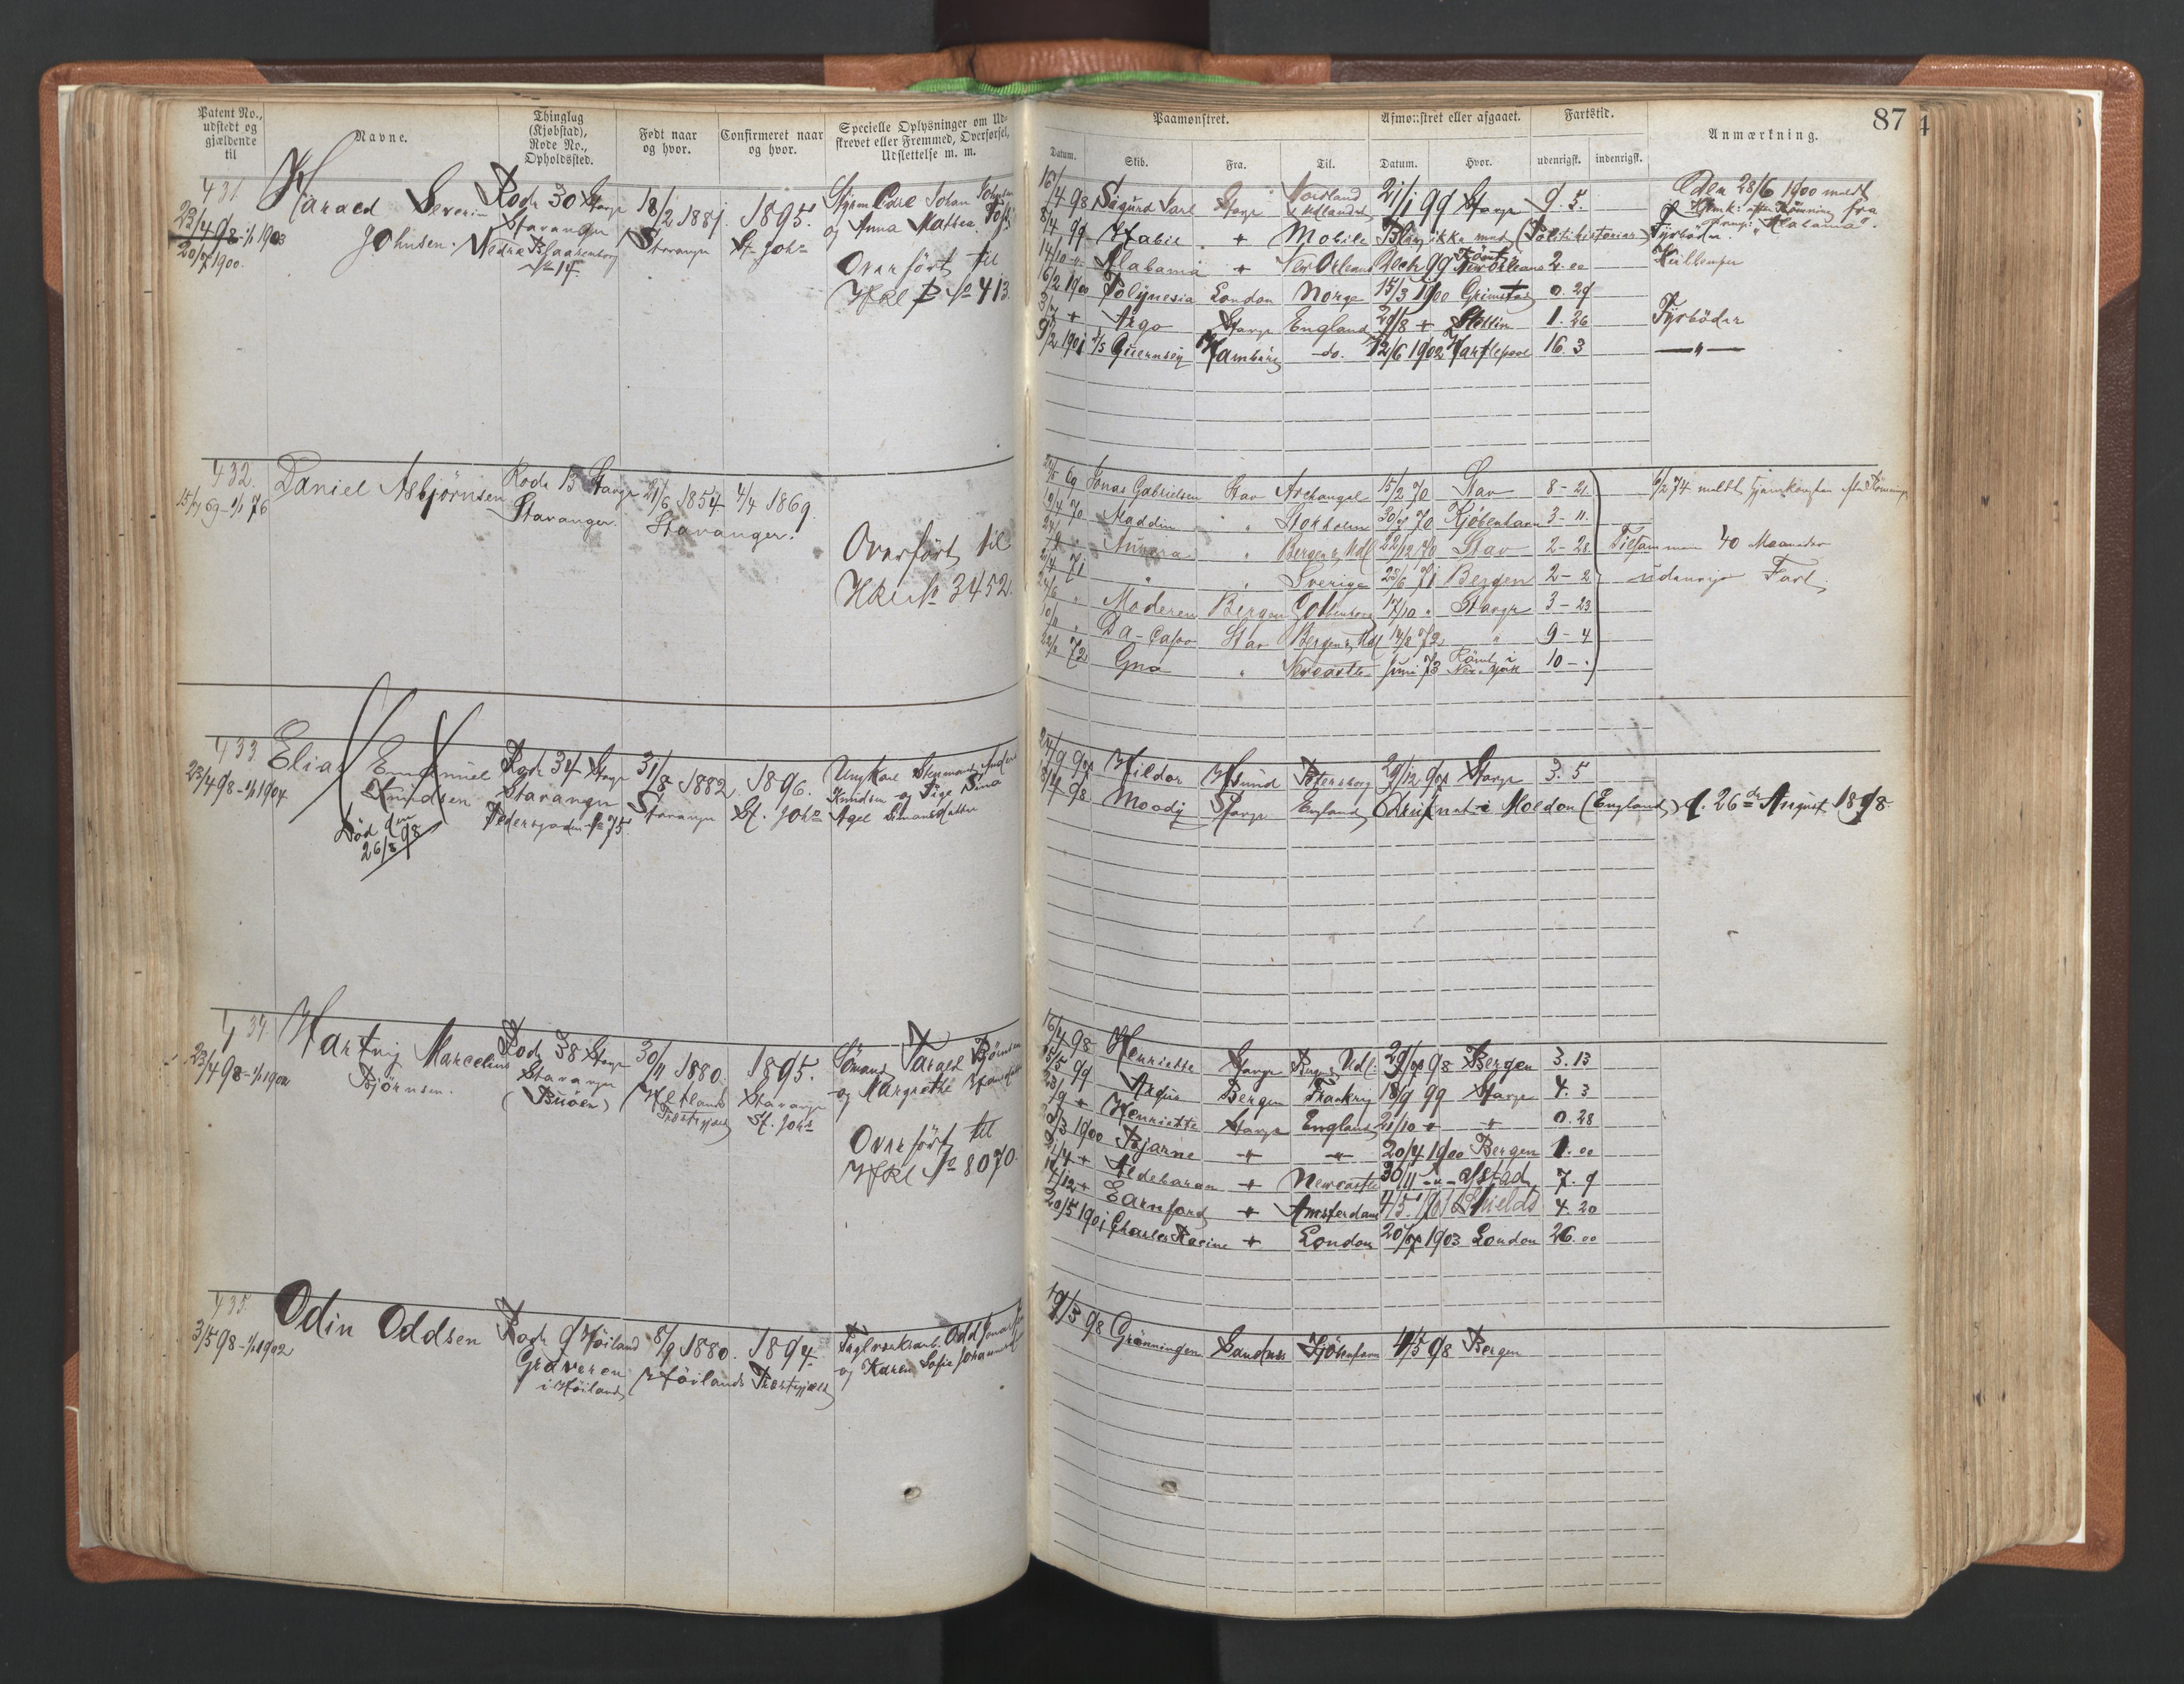 Patent No., udstedt og gjældende til
Navne.
Thinglag (Kjøbstad), Rode No., Opholdssted.
Født naar og hvor.
Confirmeret naar og hvor.
Specielle Oplysninger om Udskrevet eller Fremmed, Overførsel, Udslettelse m. m.
431.
23/4 98 - 1/1 1903
20/7 1900.
Harald Severin
Johnsen.
Rode 30 Stavgr
Stavanger
Nedre Blaasenborg
No 14
18/2 1881.
Stavanger
1895.
St. Johs
og Anna Mathea
Overført til
No 413.
432.
15/7 69 - 1/1 76
Daniel Asbjørnsen
Rode 13 Stavgr
Stavanger.
21/6 1854
Stavanger.
4/4 1869.
Overført til
No 3452.
433.
23/4 98 - 1/1 1904
Elias Emanuel
Knudsen
Død den
26/8 98
Rode 34 Stavgr
Stavanger
Pedersgaden No 75
31/8 1882.
Stavanger
1896.
St. Johs
Ungkarl
Knudsen og Pige Sina
434
23/4 98 - 1/1 1902
Hartvig Marcelius
Bjørnsen.
Rode 38 Stavgr
Stavanger
(Buøen)
30/11 1880.
Hetlands
Præstegjæld
1895.
Stavanger
St. Johs
Sømand Bjørnsen
og Margrethe
Overført til
No 8070.
435.
3/5 98 - 1/1 1902
Odin Oddsen
Rode 9 Høiland
Graveren
i Høiland
8/9 1880.
Høilands Præstegjæld
1894.
Odd
og Karen Sofie
87
Paamønstret.
Afmønstret eller afgaaet.
Fartstid.
Anmærkning.
Datum.
Skib.
Fra.
Til.
Datum.
Hvor.
udenrigsk.
indenrigsk.
16/4 98 Sigurd Jarl Stavgr Nordland & Udlandet 21/1 99 Stavgr 9. 5.
Den 28/6 1900 meldt
Hjemk: efter Rømning fra
"Alabama".
8/4 99 Habil + Mobile Blev ikke med (Politihistorier) Fyrbøder.
14/10 Alabama + New Orleans Decb 99 Rømt New Orleans 2. 00
6/2 1900 Polynesia London Norge 15/3 1900 Grimstad 0. 29
3/7 + Argo Stavgr England 29/8 + Stettin 1. 26 Fyrbøder
9/2 1901 S/S Guernsey Hamburg do. 12/6 1902 Hartlepool 16. 3 — " —
69 Jonas Gabrielsen Stav Archangel 15/2 70 Stav 8 - 21
74 meldt hjemkommen efter Rømning
19/4 70 Maddin " Stokholm 30/7 70 Kjøbenhavn 3 - 11.
Aurora " Bergen & Udl 22/12 70 Stav 2 - 28
Tilsammen 40 Maaneder
71 " " Sverige 28/6 71 Bergen 2 - 2
udenrigs Fart.
Moderen Bergen Gottenborg 17/10 " Stavgr 3 - 23
Da-Capo Stav Bergen & Udl 14/8 72 " 9 - 4
72 Gna " Newcastle Juni 73 Rømt i New York 10 - "
Hildor Ysund Petersborg 29/12 97 Stavgr 3. 5
8/4 98 Moody Stavgr England Druknet i Moldon (England) d. 26de August 1898.
16/4 98 Henriette Stavgr Bergen & Udl: 98 Bergen 3. 13
15/5 99 Argus Bergen Frankrig 18/9 99 Stavgr 4. 3
+ Henriette Stavgr England 21/10 + + 0. 28
1900 Bjarne + + 20/4 1900 Bergen 1. 00
21/4 + Aldebaran + Newcastle 30/11 7. 9
/12 + Earnford + Amsterdam 4/5. 1901 Shields 4. 20
20/5 1901 Charles Racine + London 20/7 1903 London 26. 00
98 Grønningen Sandnes Kjøbenhavn 98 Bergen